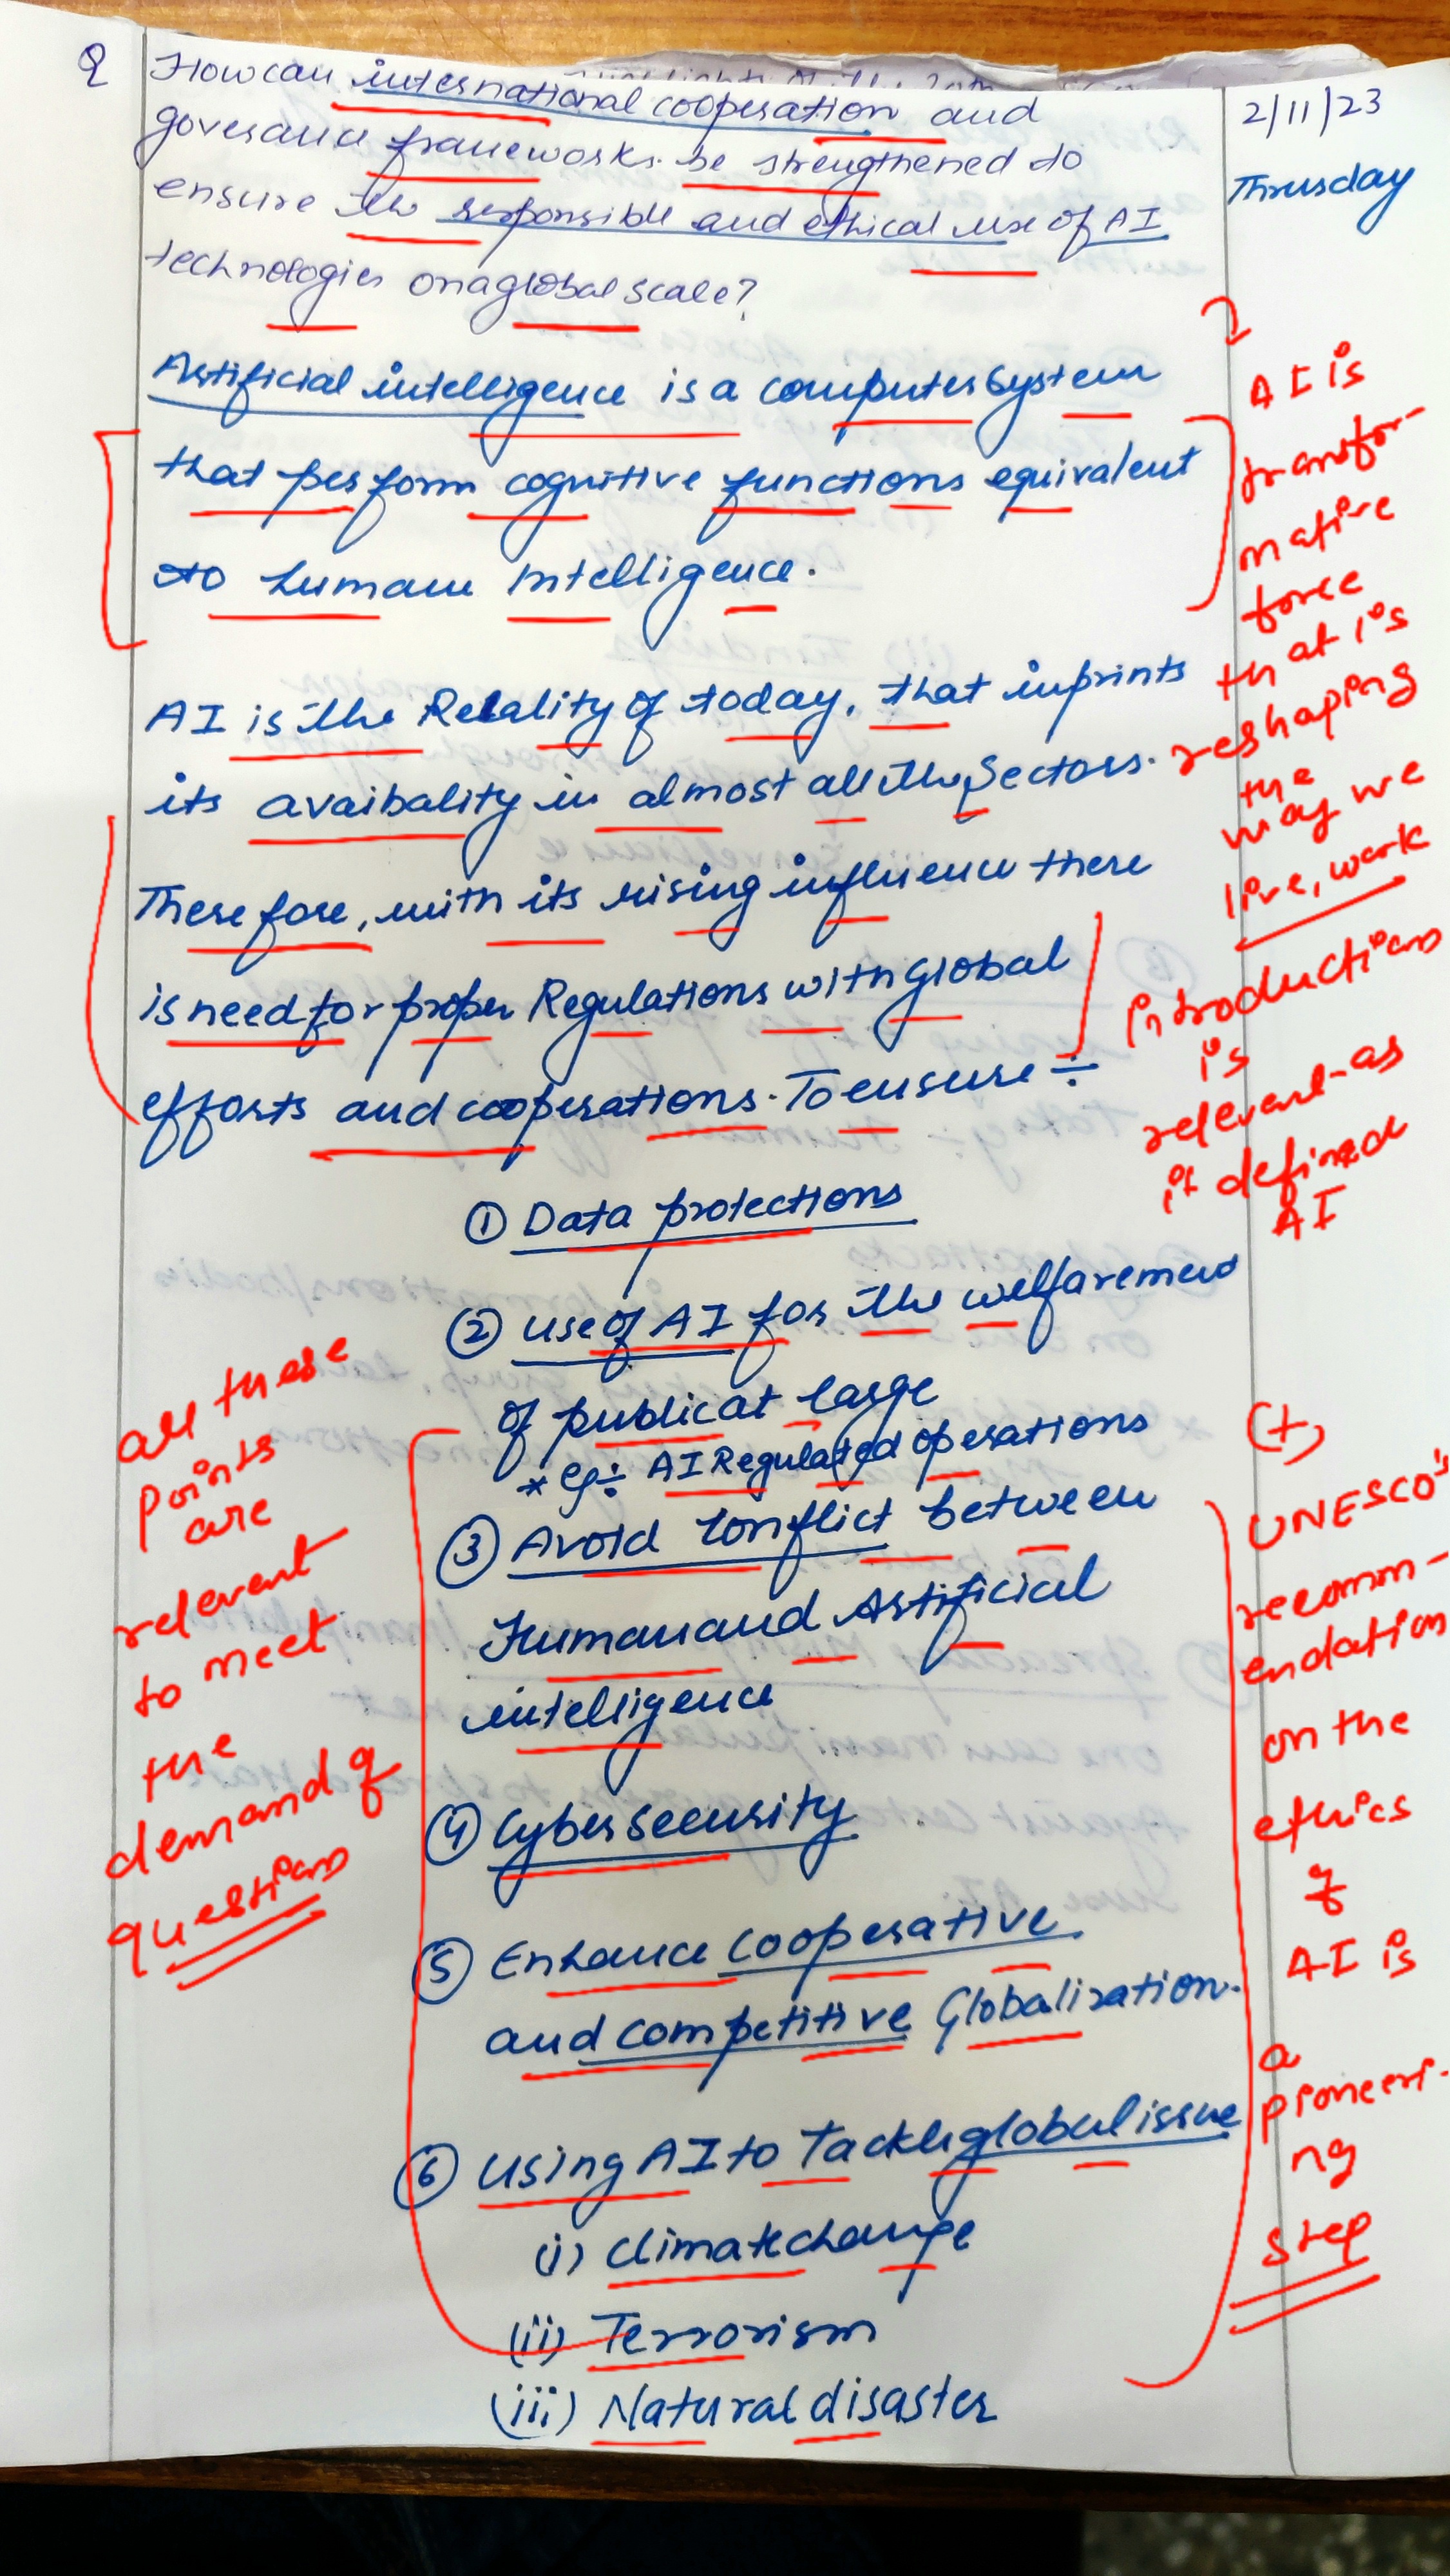 Q How can international cooperation and
goverance frameworks be strengthened to
ensure the responsible and ethical use of AI
technologies on a global scale?
2/11/23
Thrusday
Artificial intelligence is a computer System
that perform cognitive functions equivalent
to human Intelligence.
AI is the Relality of today, that imprints
its avaibality in almost all the Sectors.
Therefore, with its rising influence there
is need for proper Regulations with Global
efforts and cooperations. To ensure ÷
① Data protections
② Use of AI for the welfarement
of public at large
* eg ÷ AI Regulated operations
③ Avoid Conflict between
Human and Artificial
intelligence
④ Cyber security
⑤ Enhance cooperative
and competitive Globalization.
⑥ Using AI to Tackle global issue
(i) Climate change
(ii) Terrorism
(iii) Natural disaster
AI is
transfor-
mative
force
that is
reshaping
the
way we
live, work
introduction
is
relevent-as
it defined
AI
all these
points
are
relevent
to meet
the
demand of
question
(+)
UNESCO's
recomm-
endation
on the
ethics
of
AI is
a
pioneeri-
ng
step